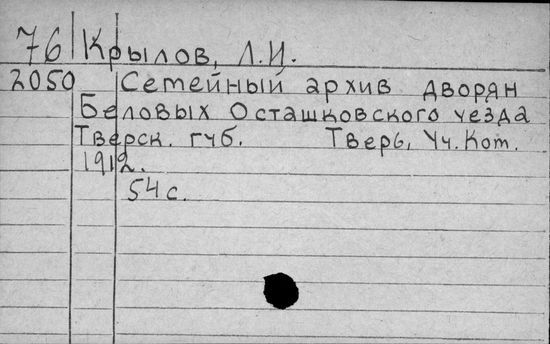 76 Крылов, Л.И.
2050 Семейный архив дворян
Беловых Осташковского уезда
Тверск. губ. Тверь, Уч. Кот.
1912.
54 с.